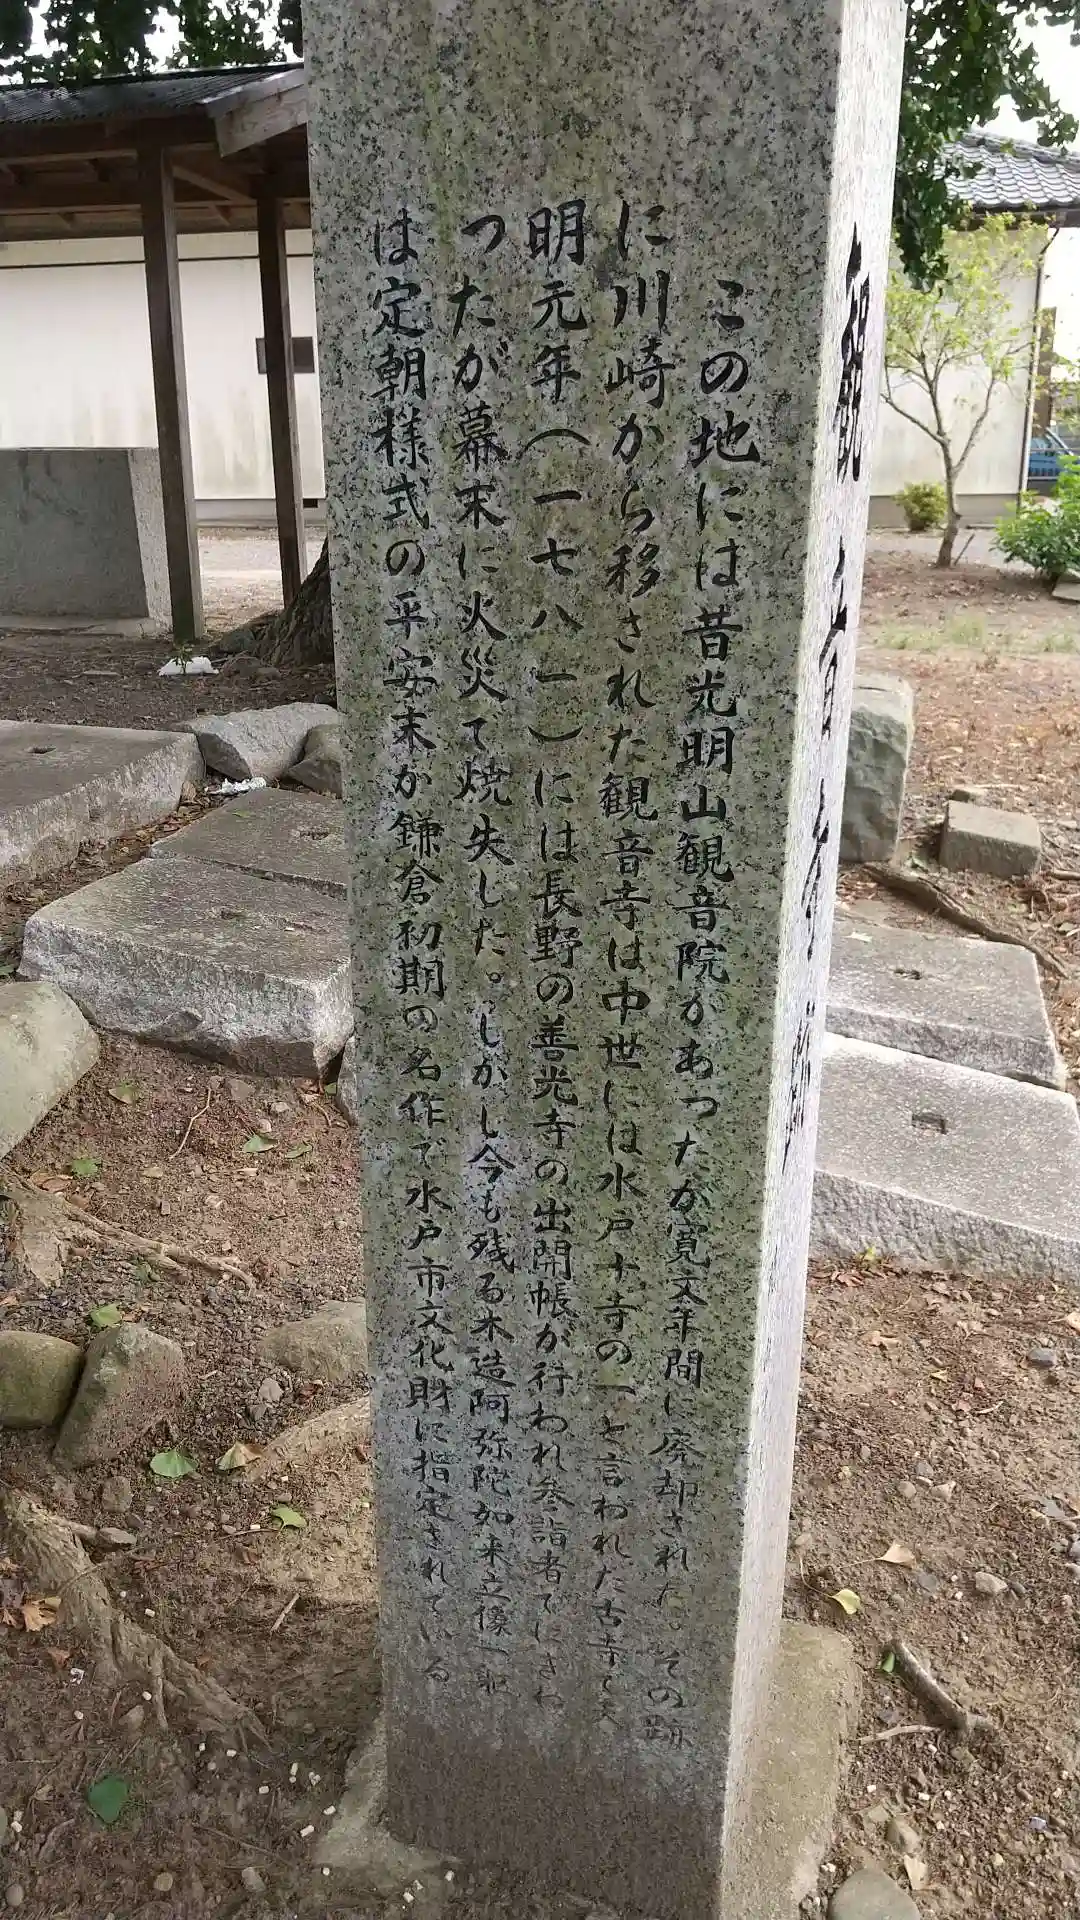 この地には昔光明山観音院があったが寛文年間に廃却された。その跡
に川崎から移された観音寺は中世には水戸十寺の一と言われた古寺で天
明元年(一七八一)には長野の善光寺の出開帳が行われ参詣者でにぎわ
つたが幕末に火災で焼失した。しかし今も残る木造阿弥陀如来立像一躯
は定朝様式の平安末か鎌倉初期の名作で水戸市文化財に指定されている